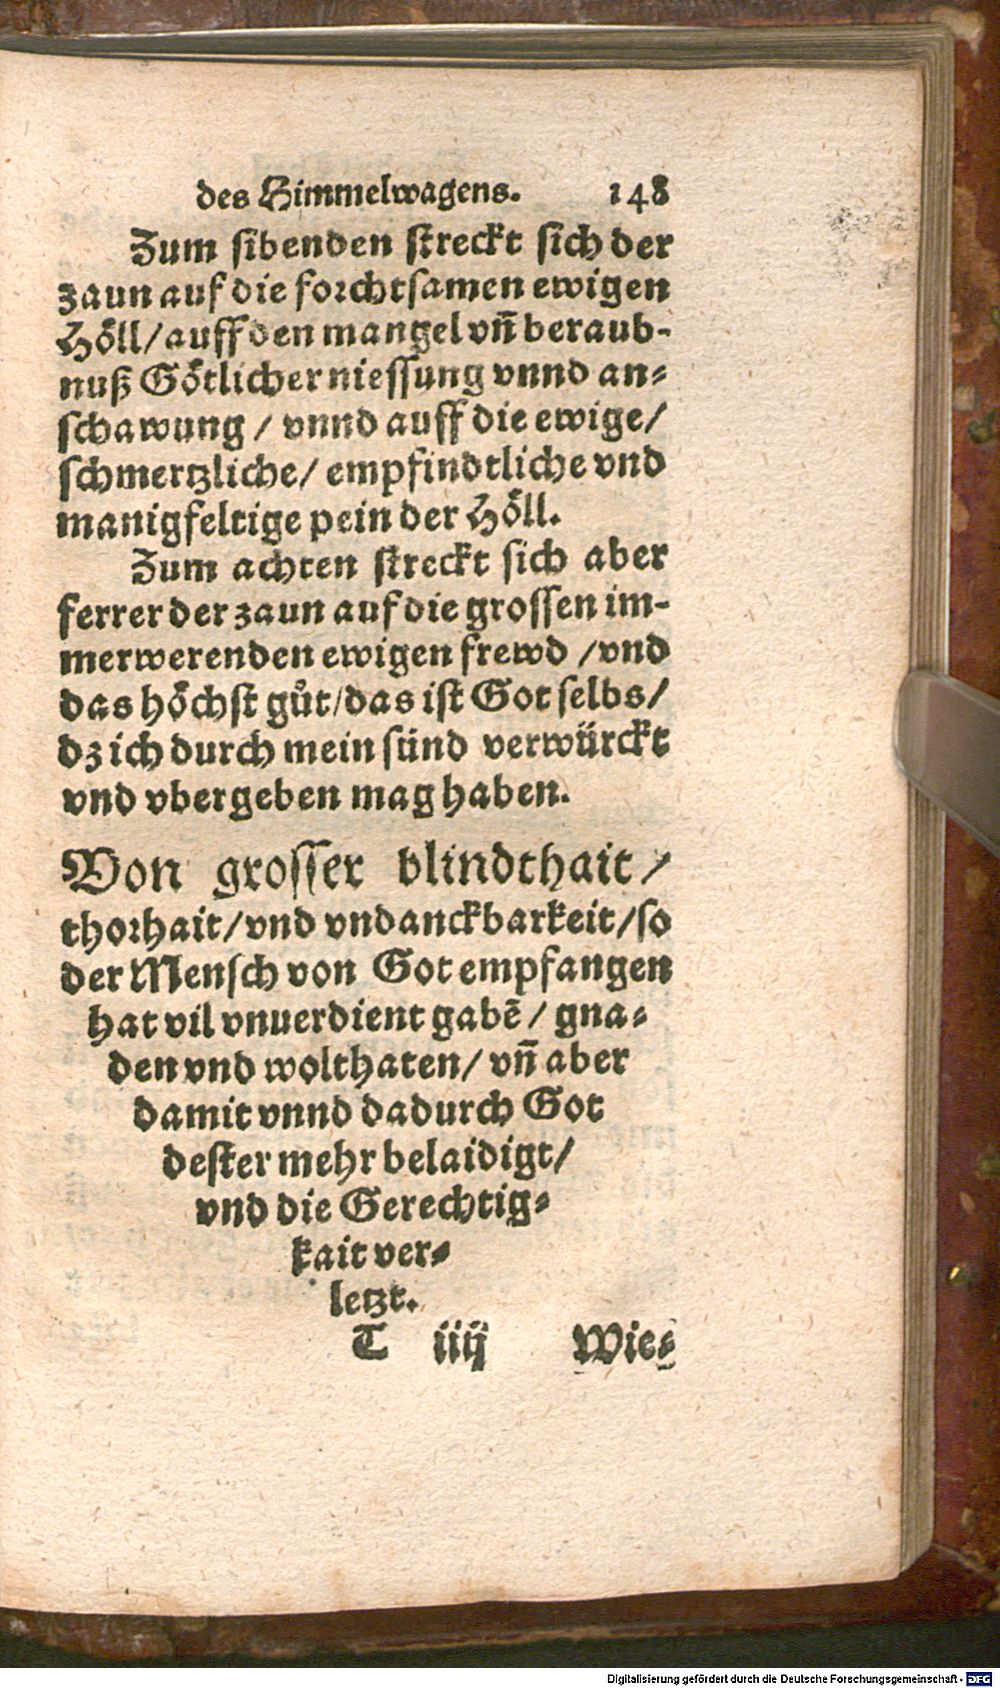 des Himmelwagens. 148
Zum sibenden streckt sich der
zaun auf die forchtsamen ewigen
Höll/ auff den mangel vñ beraub-
nuß Götlicher niessung vnnd an-
schawung / vnnd auff die ewige/
schmertzliche/ empfindtliche vnd
manigfeltige pein der Höll.
Zum achten streckt sich aber
ferrer der zaun auf die grossen im-
merwerenden ewigen frewd /vnd
das höchst gůt/das ist Got selbs/
dz ich durch mein sünd verwürckt
vnd vbergeben mag haben.
Von grosser blindthait/
thorhait/vnd vndanckbarkeit/so
der Mensch von Got empfangen
hat vil vnuerdient gabē/ gna-
den vnd wolthaten/ vñ aber
damit vnnd dadurch Got
dester mehr belaidigt/
vnd die Gerechtig-
kait ver-
letzt.
T iiij Wie-
Digitalisierung gefördert durch die Deutsche Forschungsgemeinschaft - DFG